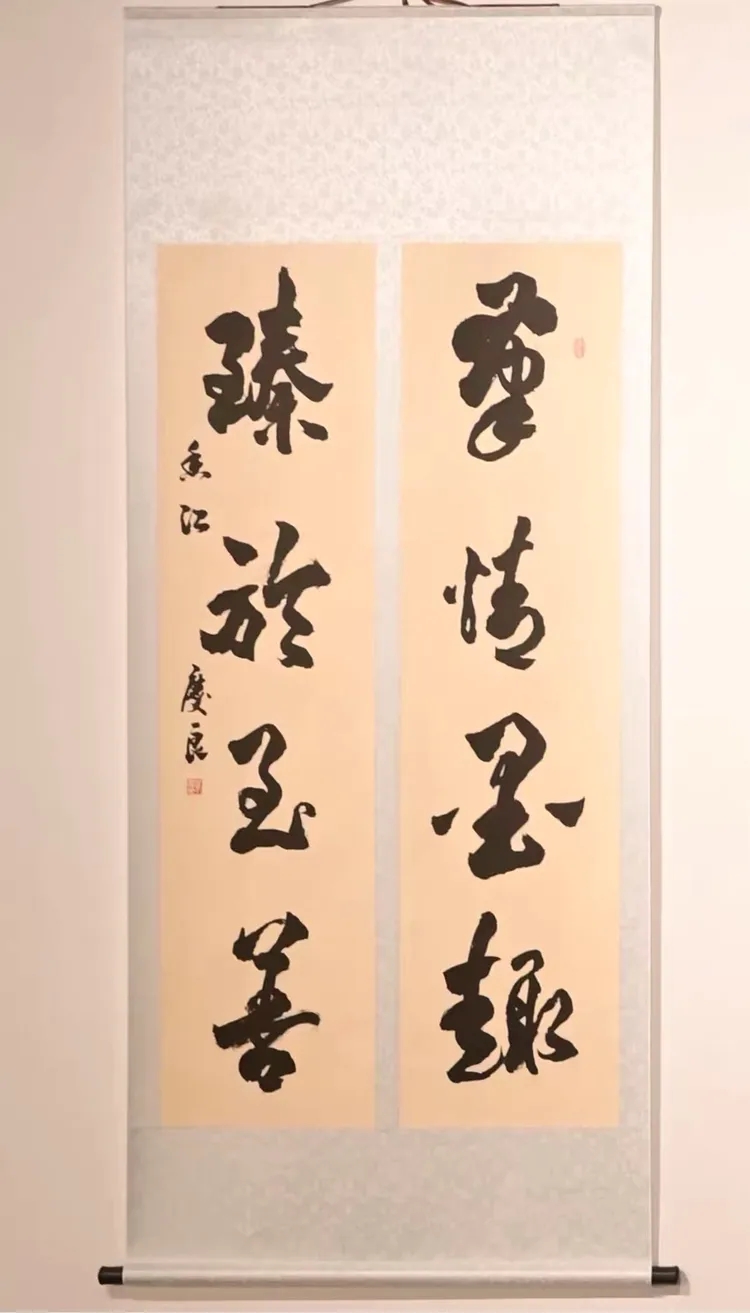 筆情墨趣
臻於至善
香江 慶良